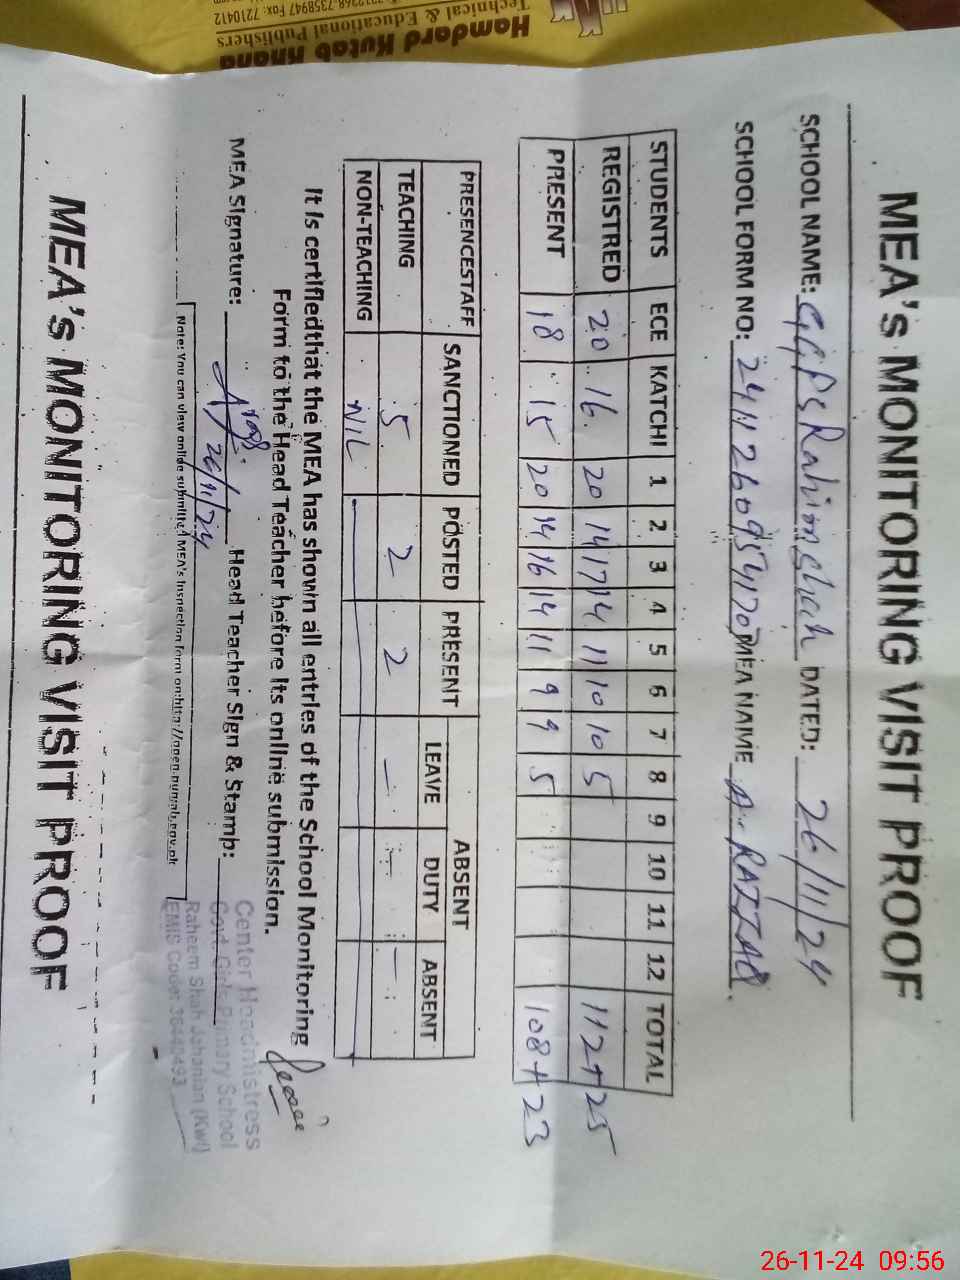 Hamdard Kutab Khana
Technical & Educational Publishers
7358947 Fax: 7210412
MEA's MONITORING VISIT PROOF
SCHOOL NAME: GGPS Rahim shah DATED: 26/11/24
SCHOOL FORM NO: MEA NAME A. RAZZAQ.
STUDENTS ECE KATCHI 1 2 3 4 5 6 7 8 9 10 11 12 TOTAL
REGISTRED 20 16 20 14 17 14 11 10 10 5 112+25
PRESENT 18 15 20 14 16 14 11 9 9 5 108+23
PRESENCESTAFF SANCTIONED POSTED PRESENT ABSENT
LEAVE DUTY ABSENT
TEACHING 5 2 2 — — —
NON-TEACHING NIL
It is certifiedthat the MEA has shown all entries of the School Monitoring
Form to the Head Teacher before its online submission.
MEA Signature: 26/11/24 Head Teacher Sign & Stamp:
Center Headmistress
Govt. Girls Primary School
Raheem Shah Jahanian (Kwl)
EMIS Code:
Note: You can view online submitted MEA's Inspection form on:http://open.punjab.gov.pk
MEA's MONITORING VISIT PROOF
26-11-24 09:56